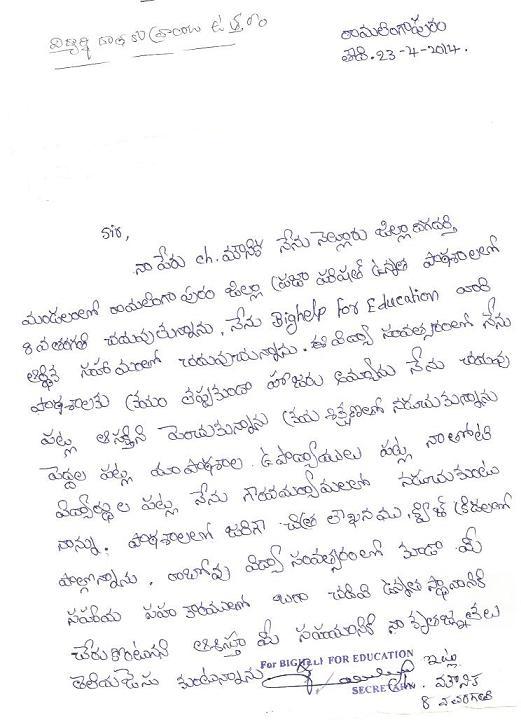 విద్యార్థి దాతకు వ్రాయు ఉత్తరం
రామలింగాపురం
తేది. 23-4-2014.
Sir,
నా పేరు ch. మౌనిక నేను నెల్లూరు జిల్లా దగదర్తి
మండలంలో రామలింగాపురం జిల్లా ప్రజా పరిషత్ ఉన్నత పాఠశాలలో
8 వ తరగతి చదువుతున్నాను. నేను Bighelp for Education వారి
ఆర్థిక సహాయంతో చదువుచున్నాను. ఈ విద్యా సంవత్సరంలో నేను
పాఠశాలకు క్రమం తప్పకుండా హాజరు అయ్యాను నేను చదువు
పట్ల ఆసక్తిని పెంచుకున్నాను క్రమ శిక్షణతో నడుచుకున్నాను
పెద్దల పట్ల మా పాఠశాల ఉపాధ్యాయులు పట్ల నా తోటి
విద్యార్థుల పట్ల నేను గౌరవమర్యాదలతో నడుచుకుంటు
న్నాను. పాఠశాలలో జరిగిన చిత్ర లేఖనము, క్విజ్ క్రీడలలో
పాల్గొన్నాను. రాబోవు విద్యా సంవత్సరంలో కూడా మీ
సహాయ సహకారములతో బాగా చదివి ఉన్నత స్థానానికి
చేరుకొంటానని ఆశిస్తూ మీ సహాయానికి నా కృతజ్ఞతలు
తెలియజేసు కుంటున్నాను
For BIGHELP FOR EDUCATION
ఇట్లు
SECRETARY
Ch. మౌనిక
8 వ తరగతి